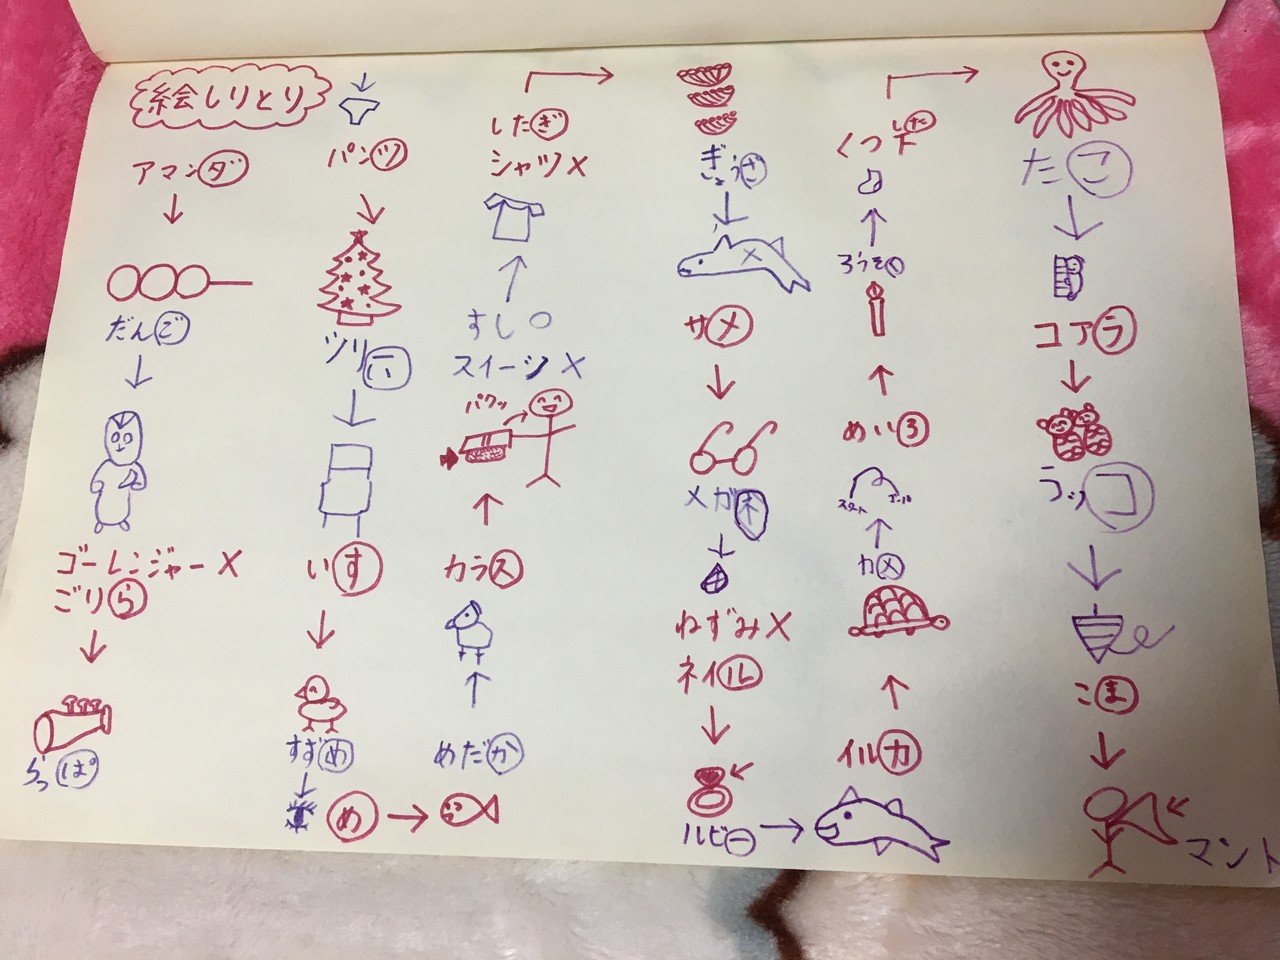 絵しりとり
アマンダ
だんご
ゴーレンジャー×
ごりら
らっぱ
パンツ
ツリー
いす
すずめ
め
めだか
カラス
パクッ
スイーツ×
すし○
シャツ×
したぎ
ぎょうざ
サメ
メガネ
ねずみ×
ネイル
ルビー
イルカ
カメ
スタート
ゴール
めいろ
ろうそく
くつ下
した
たこ
コアラ
ラッコ
こま
マント